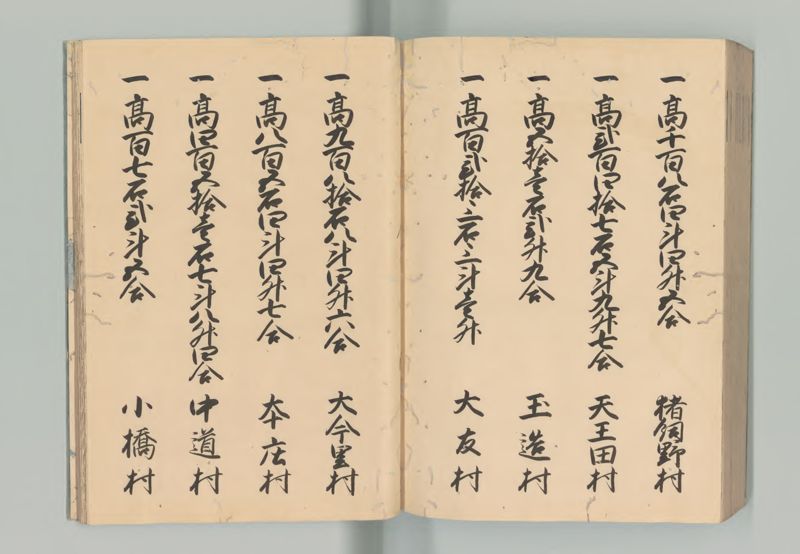 一高千百八石四斗四升五合 猪飼野村
一高弐百四拾七石五斗九升七合 天王田村
一高五拾壱石弐升九合 玉造村
一高百弐拾三石三斗壱升 大友村
一高九百八拾石八斗四升六合 大今里村
一高八百五石四斗四升七合 本庄村
一高四百五拾壱石七斗八升四合 中道村
一高百七石弐斗五合 小橋村